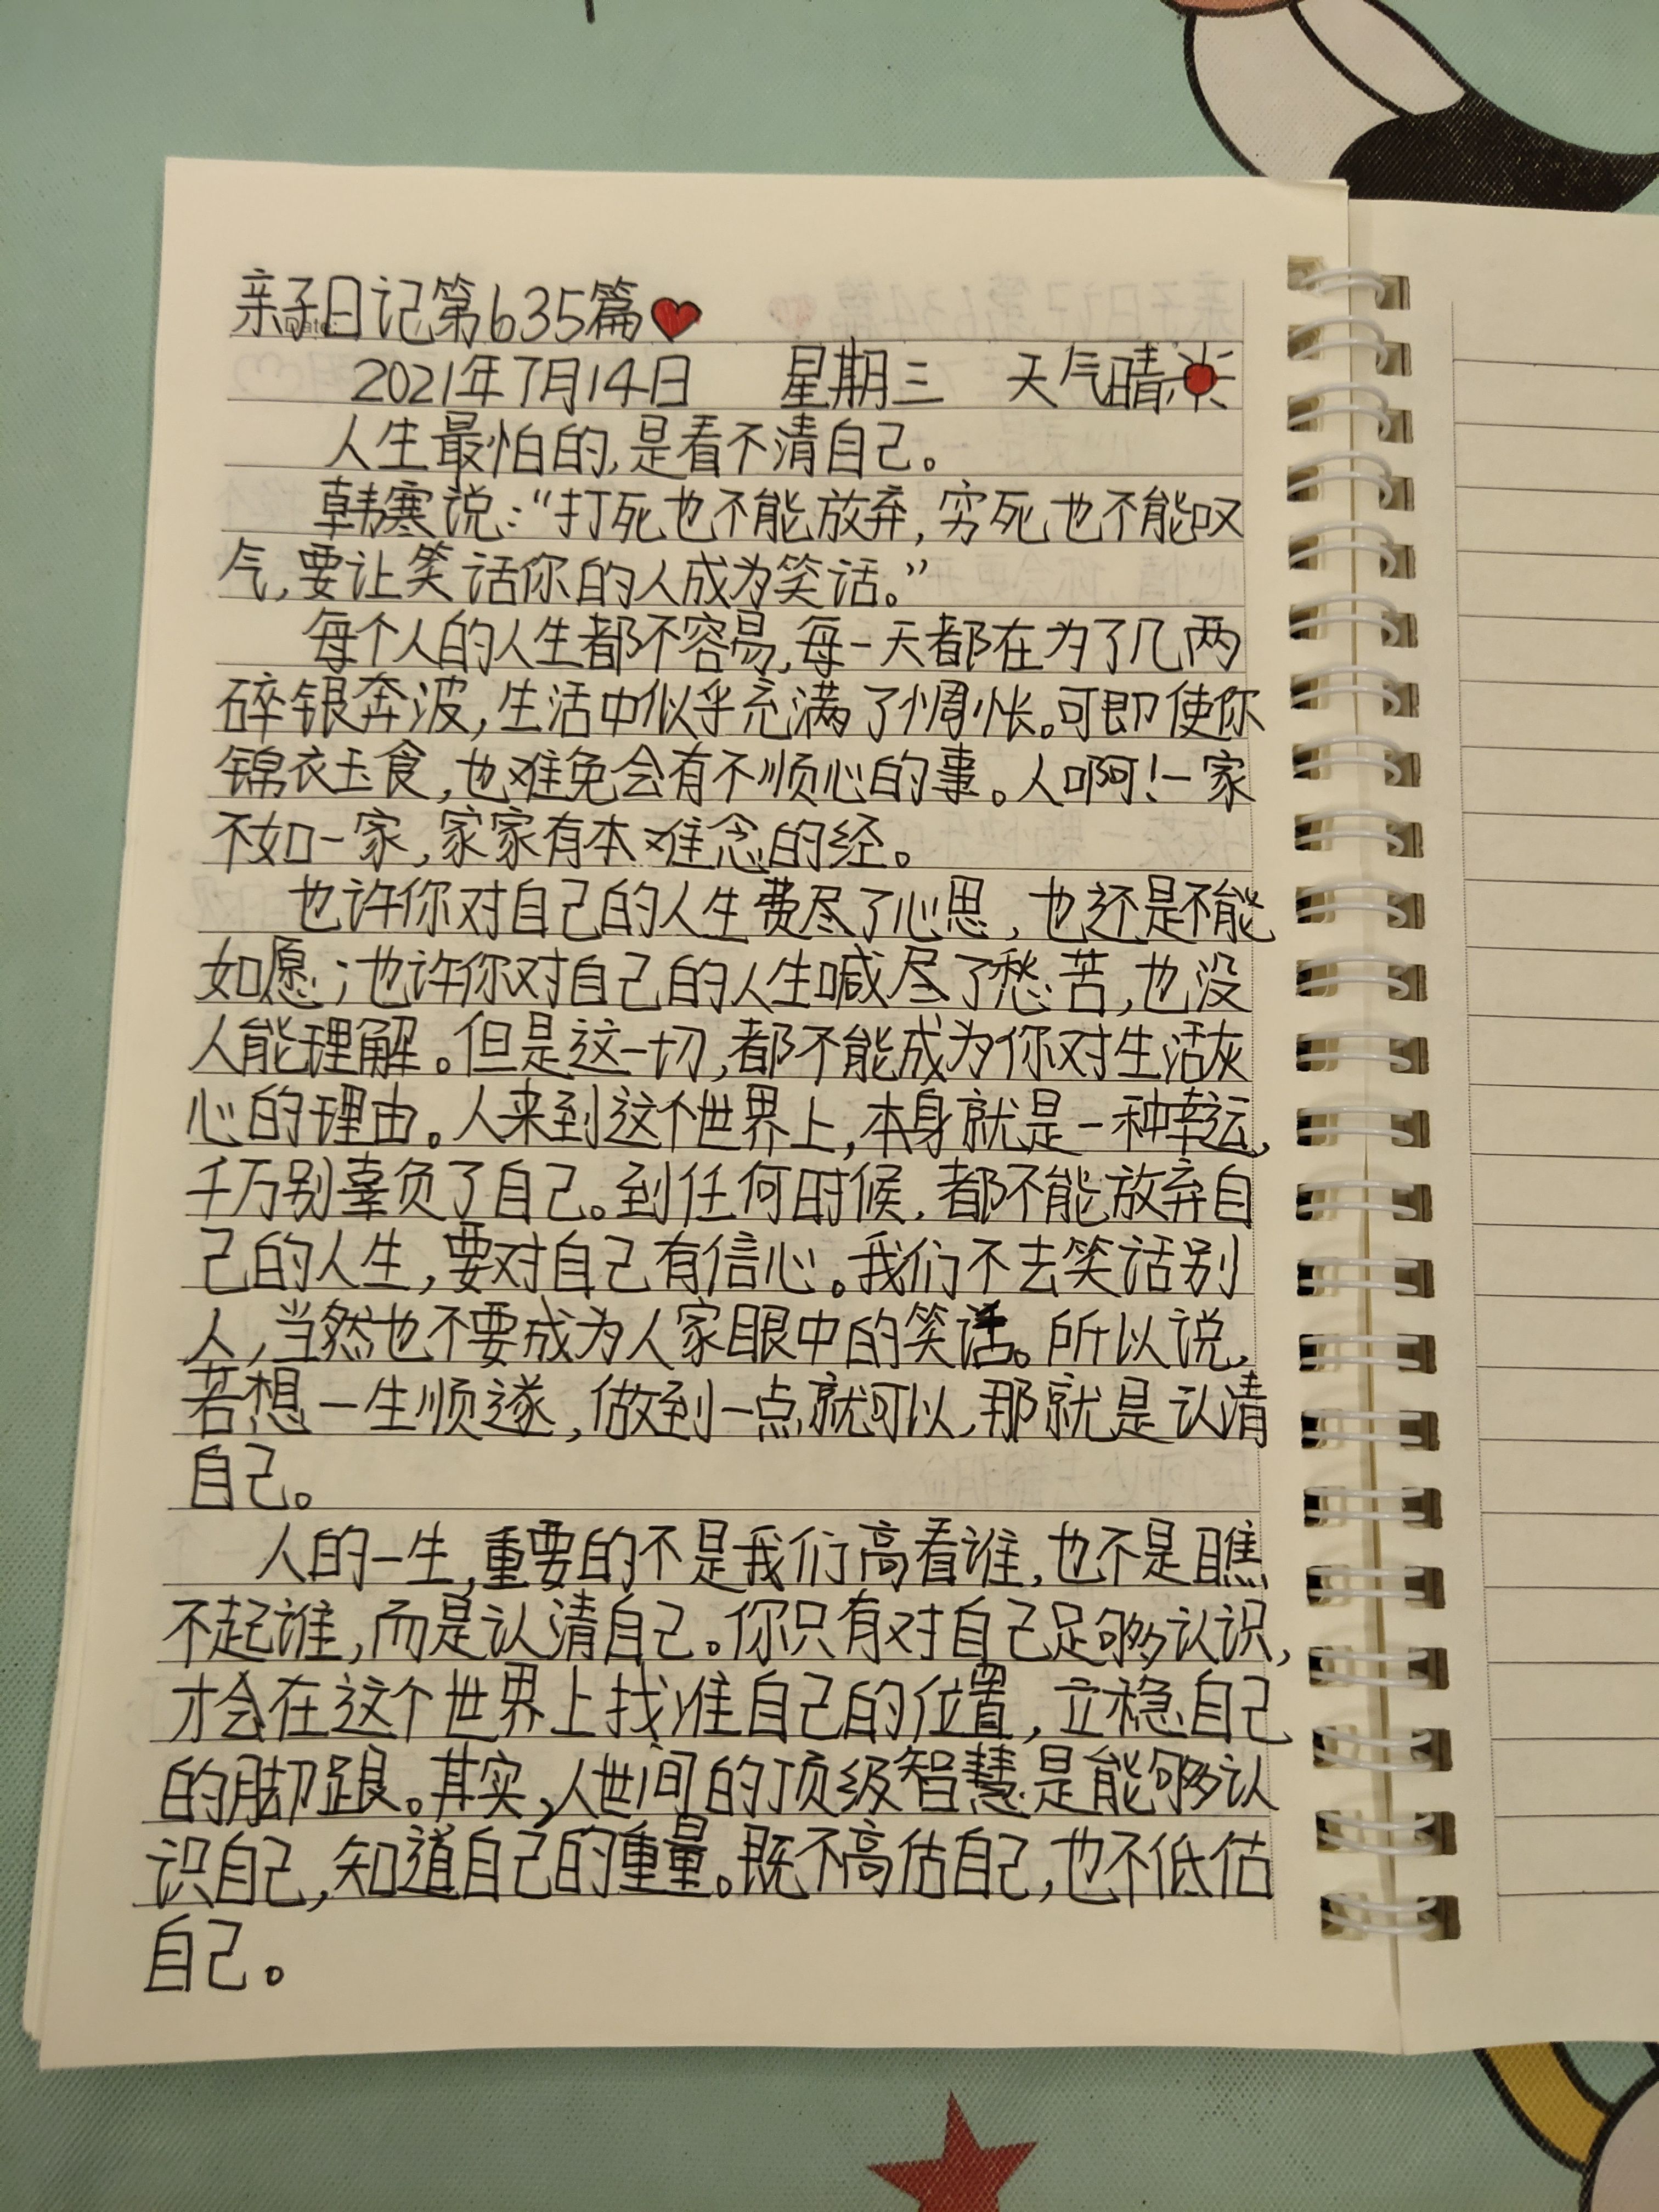 亲子日记第635篇
Date:
2021年7月14日 星期三 天气晴
人生最怕的,是看不清自己。
韩寒说:“打死也不能放弃,穷死也不能叹
气,要让笑话你的人成为笑话。”
每个人的人生都不容易,每一天都在为了几两
碎银奔波,生活中似乎充满了惆怅。可即使你
锦衣玉食,也难免会有不顺心的事。人啊!一家
不如一家,家家有本难念的经。
也许你对自己的人生费尽了心思,也还是不能
如愿;也许你对自己的人生喊尽了愁苦,也没
人能理解。但是这一切,都不能成为你对生活灰
心的理由。人来到这个世界上,本身就是一种幸运,
千万别辜负了自己。到任何时候,都不能放弃自
己的人生,要对自己有信心。我们不去笑话别
人,当然也不要成为人家眼中的笑话。所以说,
若想一生顺遂,做到一点就可以,那就是认清
自己。
人的一生,重要的不是我们高看谁,也不是瞧
不起谁,而是认清自己。你只有对自己足够认识,
才会在这个世界上找准自己的位置,立稳自己
的脚跟。其实,人世间的顶级智慧是能够认
识自己,知道自己的重量。既不高估自己,也不低估
自己。